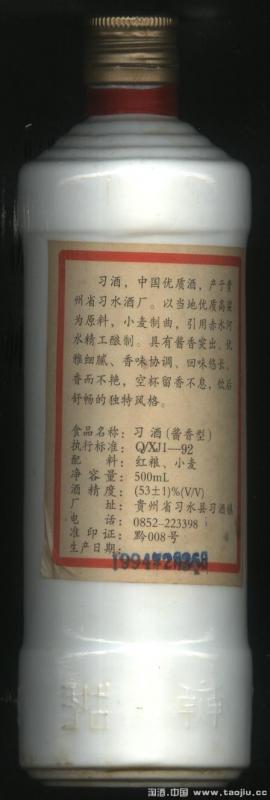 习酒,中国优质酒,产于贵
州省习水酒厂。以当地优质高粱
为原料,小麦制曲,引用赤水河
水精工酿制。具有酱香突出、优
雅细腻、香味协调、回味悠长,
香而不艳,空杯留香不息,饮后
舒畅的独特风格。
食品名称:习酒(酱香型)
执行标准:Q/XJ1—92
配料:红粮、小麦
净容量:500ml
酒精度:(53±1)%(V/V)
厂址:贵州省习水县习酒镇
电话:0852-223398
准印证:黔008号
生产日期:
淘酒.中国 www.taojiu.cc